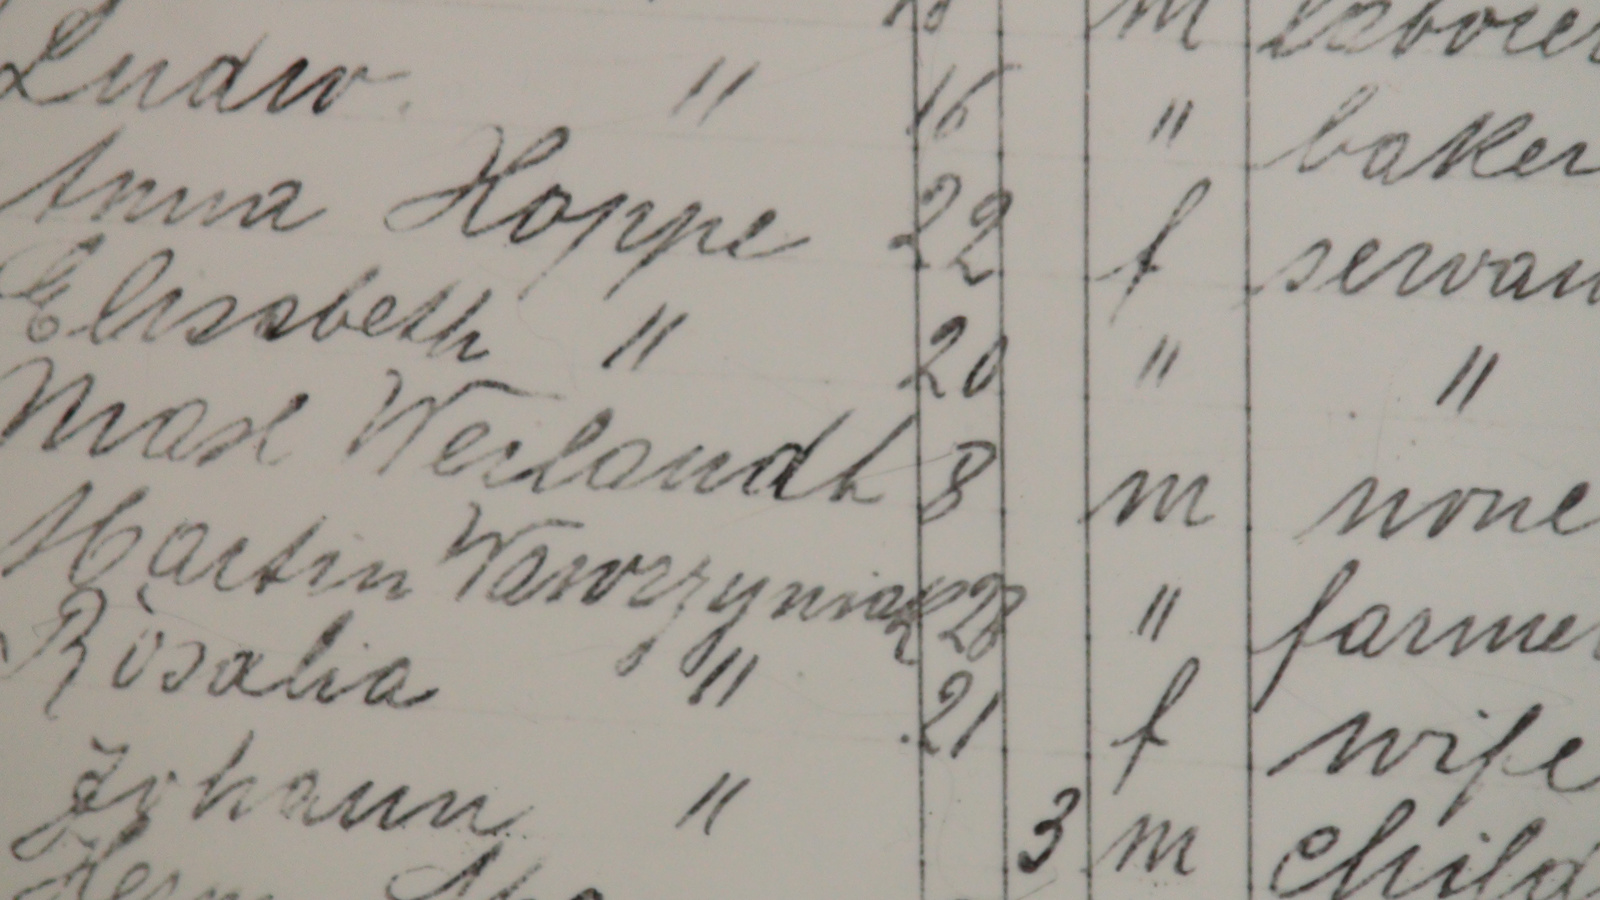 m laborer
Ludw. " 16 " baker
Anna Hoppe 22 f servan
Elisabeth " 20 " "
Max Weilandt 8 m none
Martin Wawrzyniak 28 " farmer
Rosalia " 21 f wife
Johann " 3 m child
Herm